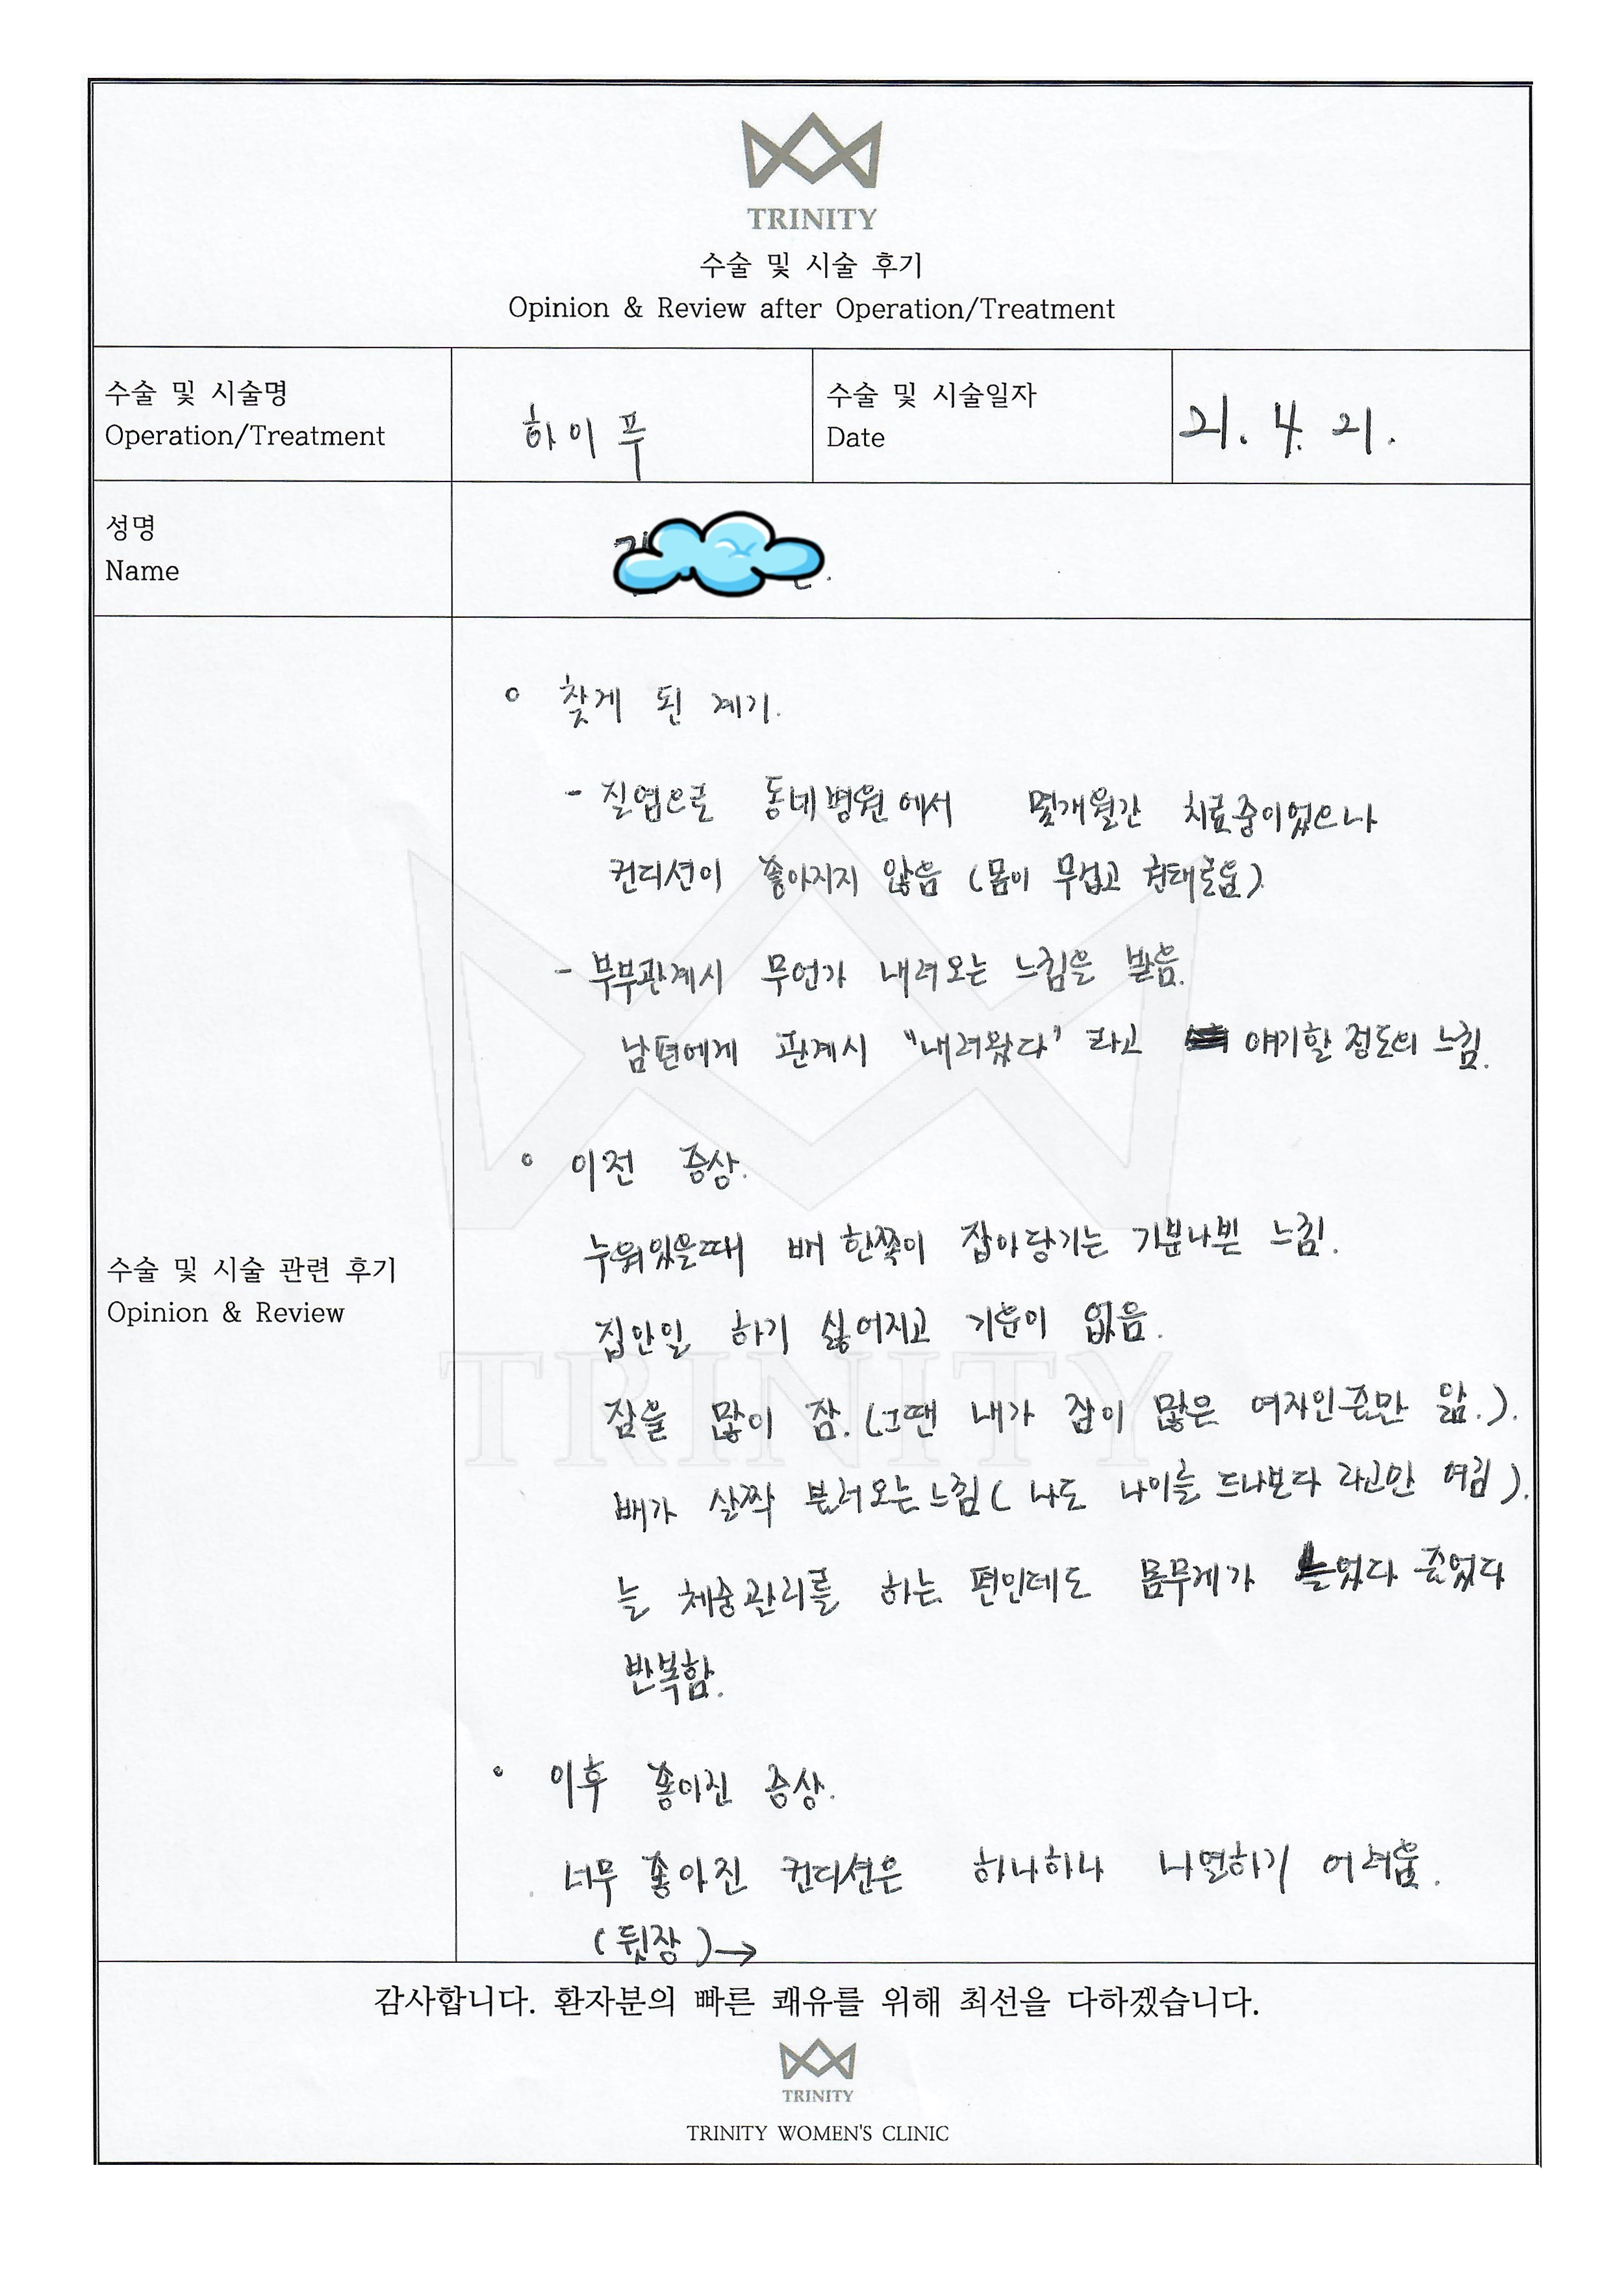 TRINITY
수술 및 시술 후기
Opinion & Review after Operation/Treatment
수술 및 시술명
Operation/Treatment
하이푸
수술 및 시술일자
Date
21. 4. 21.
성명
Name
수술 및 시술 관련 후기
Opinion & Review
° 찾게 된 계기.
- 질염으로 동네병원에서 몇개월간 치료중이었으나
컨디션이 좋아지지 않음 (몸이 무겁고 권태로움)
- 부부관계시 무언가 내려오는 느낌을 받음.
남편에게 관계시 "내려왔다" 라고 얘기할 정도의 느낌.
° 이전 증상.
누워있을때 배 한쪽이 잡아당기는 기분나쁜 느낌.
집안일 하기 싫어지고 기운이 없음.
잠을 많이 잠. (그땐 내가 잠이 많은 여자인줄만 앎.).
배가 살짝 불러오는 느낌 ( 나도 나이를 드나보다 라고만 여김 ).
늘 체중관리를 하는 편인데도 몸무게가 늘었다 줄었다
반복함.
° 이후 좋아진 증상.
너무 좋아진 컨디션은 하나하나 나열하기 어려움.
(뒷장) →
감사합니다. 환자분의 빠른 쾌유를 위해 최선을 다하겠습니다.
TRINITY
TRINITY WOMEN'S CLINIC
TRINITY